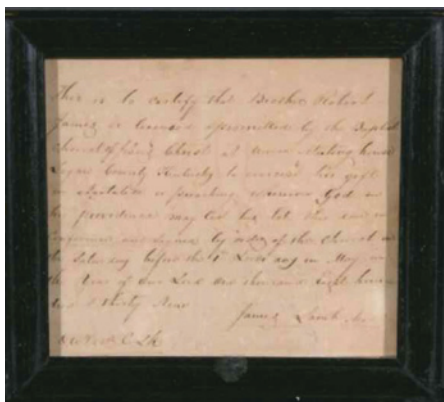 This is to certify that Brother Robert
James is licensed & permitted by the Baptist
Church of Jesus Christ at Union Meeting house
Logan County Kentucky to exercise his gift
in exhortation or preaching wherever God in
his providence may cast his lot this done in
Conference and signed by order of the Church on
the Saturday before the 1st Lords day in May in
the Year of our Lord one thousand Eight hun
and thirty Nine
James